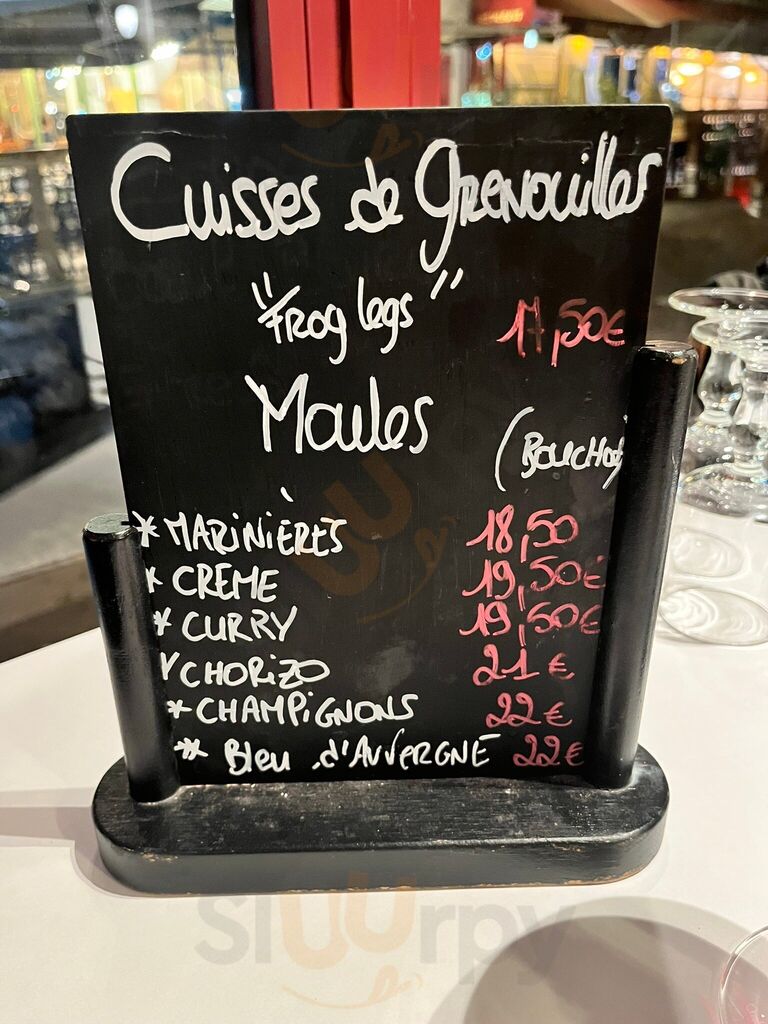 Cuisses de Grenouilles
"Frog legs" 17,50€
Moules
(BOUCHOT)
* MARINIÈRES 18,50
* CRÈME 19,50€
* CURRY 19,50€
* CHORIZO 21€
* CHAMPIGNONS 22€
* Bleu d'AUVERGNE 22€
Sluurpy